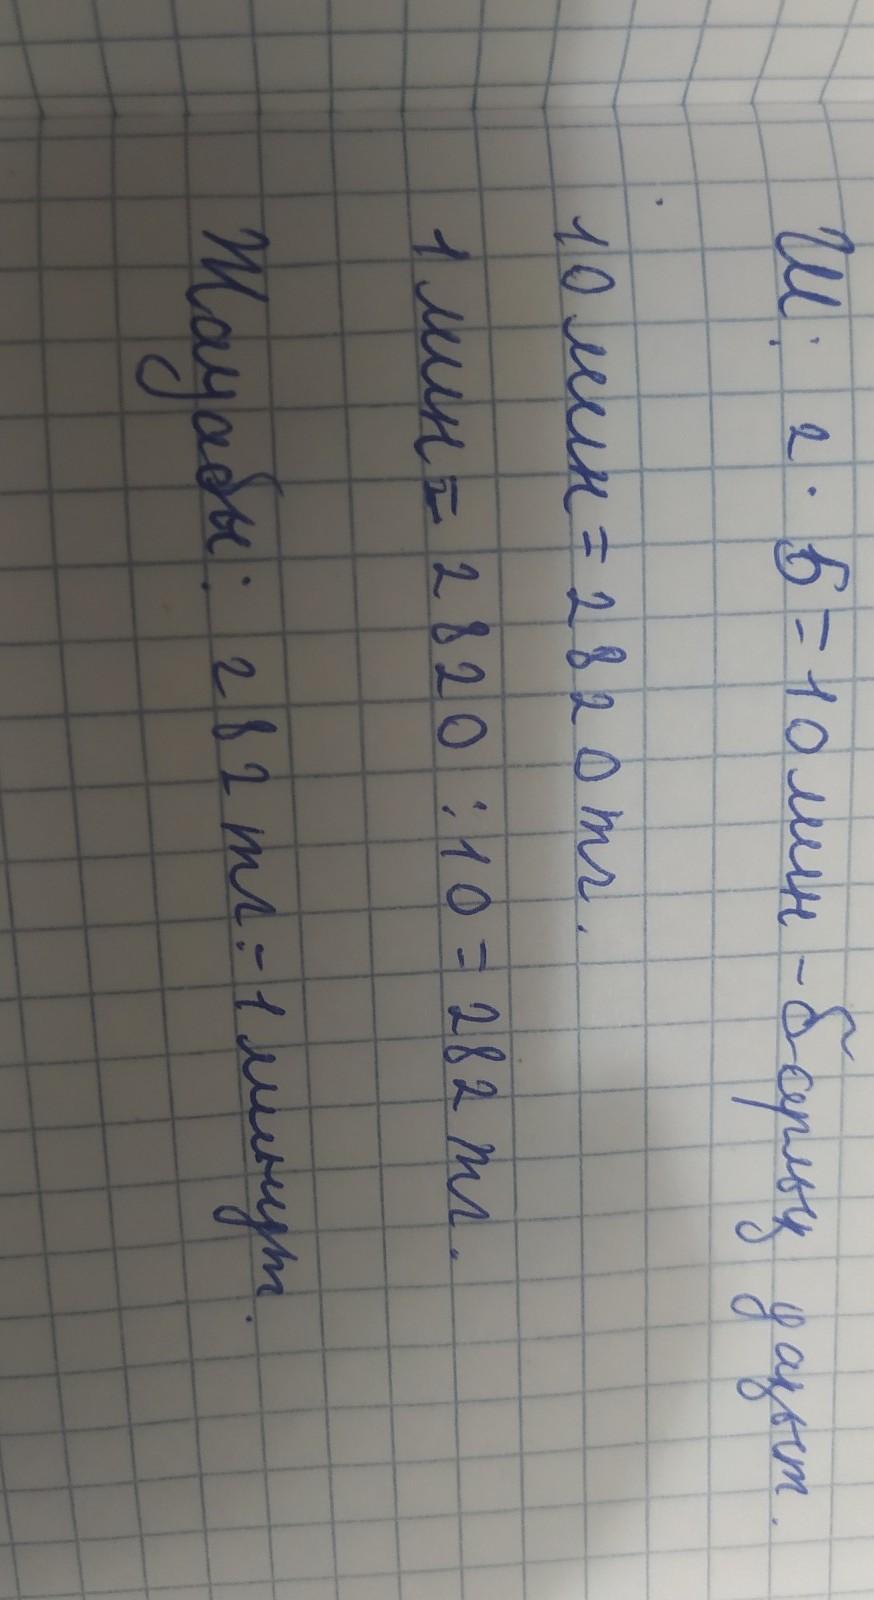 Ш: 2 · 5 = 10 мин - барлық уақыт.
10 мин = 2820 тг.
1 мин = 2820 : 10 = 282 тг.
Жауабы: 282 тг. - 1 минут.